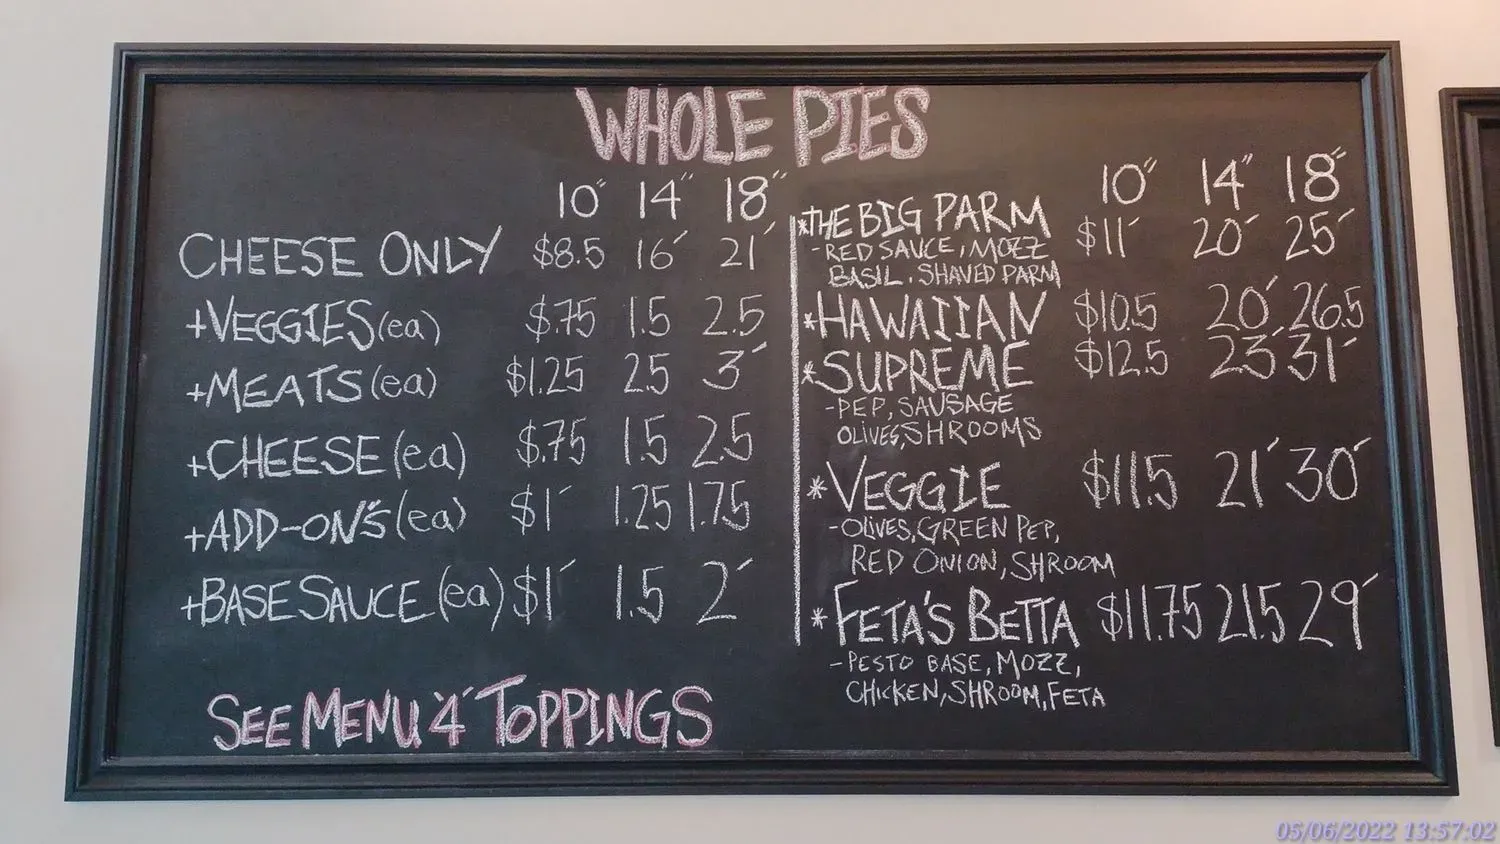 WHOLE PIES
10" 14" 18"
CHEESE ONLY $8.5 16´ 21´
+VEGGIES (ea) $.75 1.5 2.5
+MEATS (ea) $1.25 2.5 3´
+CHEESE (ea) $.75 1.5 2.5
+ADD-ON'S (ea) $1´ 1.25 1.75
+BASE SAUCE (ea) $1´ 1.5 2´
SEE MENU '4' TOPPINGS
10" 14" 18"
*THE BIG PARM $11´ 20´ 25´
-RED SAUCE, MOZZ
BASIL, SHAVED PARM
*HAWAIIAN $10.5 20´ 26.5
*SUPREME $12.5 23´ 31´
-PEP, SAUSAGE
OLIVES, SHROOMS
*VEGGIE $11.5 21´ 30´
-OLIVES, GREEN PEP,
RED ONION, SHROOM
*FETA'S BETTA $11.75 21.5 29´
-PESTO BASE, MOZZ,
CHICKEN, SHROOM, FETA
05/06/2022 13:57:02